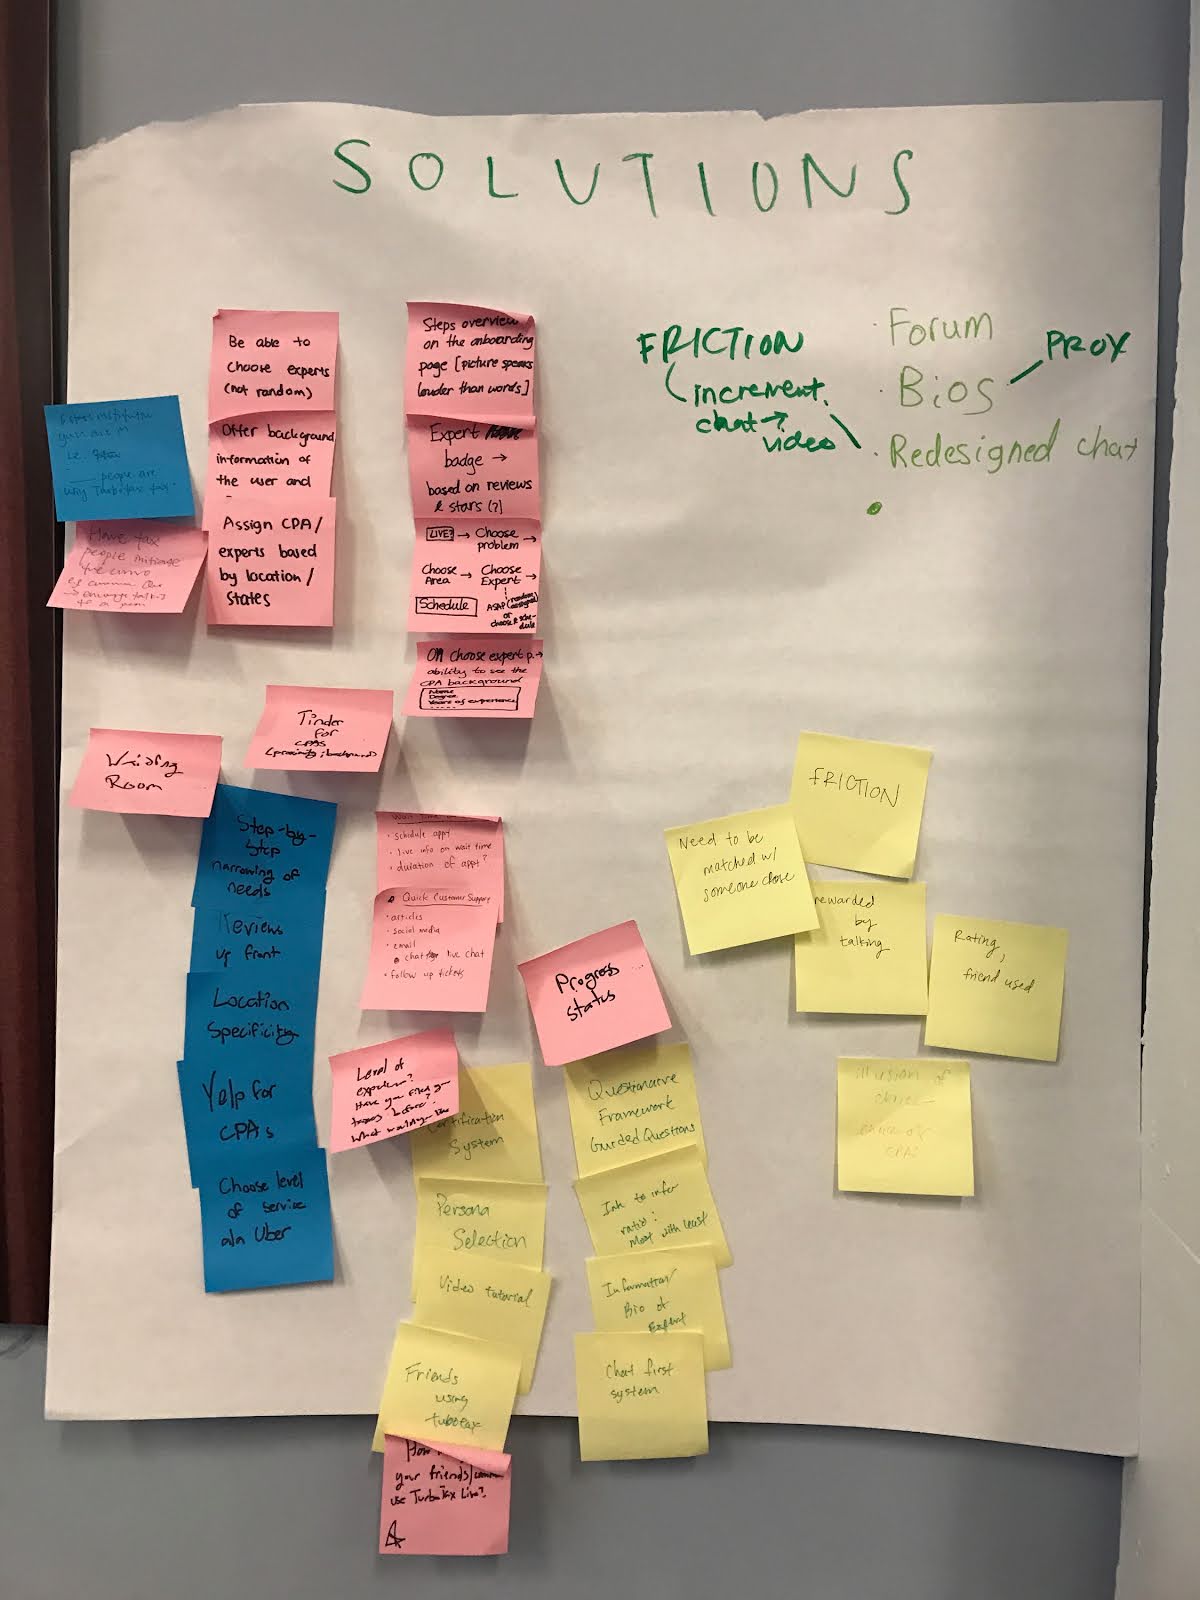 SOLUTIONS
Be able to
choose experts
(not random)
Offer background
information of
the user and
Assign CPA/
experts based
by location/
states
Steps overview
on the onboarding
page [picture speaks
louder than words]
Expert
badge →
based on reviews
& stars (?)
LIVE? → Choose
problem →
Choose
Area → Choose
Expert →
Schedule
ASAP (random
assigned)
or
choose & sche-
dule
On choose expert p. →
ability to see the
CPA background
Name
Degree
Years of experience
FRICTION
increment.
chat →
video
· Forum
· Bios
PROX
· Redesigned chat
people are
Have tax
people
Tinder
for
CPAs
(proximity, background)
Waiting
Room
Step-by-
Step
narrowing of
needs
Reviews
up front
Location
Specificity
Yelp for
CPAs
Choose level
of service
a la Uber
Wait time
· schedule appt
· live info on wait time
· duration of appt?
Quick Customer Support
· articles
· social media
· email
chat live chat
· follow up tickets
Progress ...
status
Level of
expertise?
Have you filed your
taxes before?
What
Certification
System
Persona
Selection
Video tutorial
Friends
using
turbotax
How
your friends/
use TurboTax Live?
Questionaire
Framework
Guided Questions
Ink to infer
ratio:
Most with least
Information/
Bio of
Expert
Chat first
system
FRICTION
Need to be
matched w/
someone close
rewarded
by
talking
Rating,
friend used
illusion of
choice
choice of
CPAs